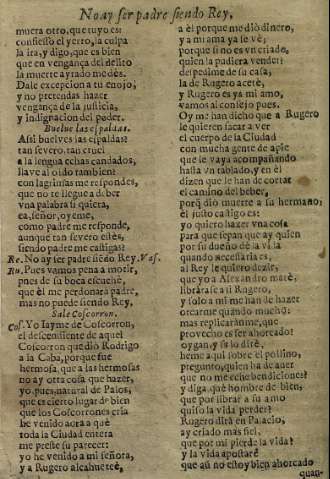 No ay ser padre siendo Rey,
muera otro, que tuyo es:
confiesso el yerro, la culpa
la ira, y digo, que es bien
que en vengança del delito
la muerte ayrado me dès.
Dale excepcion a tu enojo,
y no pretendas hazer
vengança de la justicia,
y indignacion del poder.
Buelue las espaldas.
Assi buelues las espaldas?
tan seuero, tan cruel
a la lengua echas candados,
llaue al oido tambien?
con lagrimas me respondes,
que no te llegue a deber
vna palabra si quiera,
ea, señor, oyeme,
como padre me responde,
aunque tan seuero estès,
siendo padre me castigas?
Re. No ay ser padre siẽdo Rey. Vas.
Ru. Pues vamos pena a morir,
pues de su boca escuchè,
que èl me perdonara padre,
mas no puede siendo Rey,
Sale Coscorron.
Cos. Yo Iayme de Coscorron,
el descendiente de aquel
Coscorron que diò Rodrigo
a la Caba, porque fue
hermosa, que a las hermosas
no ay otra cosa que hazer,
yo pues, natural de Palos,
que es cierto lugar de bien
que los Coscorrones cria
he venido aora a què
toda la Ciudad entera
me preste su parecer:
yo he venido a mi señora,
y a Rugero alcahuetè,
a èl porque me diò dinero,
y a mi ama ya se vè,
porque si no es vn criado,
quien la pudiera vender?
despedime de su casa,
la de Rugero acetè,
y Rugero es ya mi amo,
vamos al consejo pues.
Oy me han dicho que a Rugero
le quieren sacar a ver
el cuerpo de la Ciudad
con mucha gente de a pie
que le vaya acompañando
hasta vn tablado, y en èl
dizen que le han de cortar
el camino del beber,
porq̃ diò muerte a su hermano:
el justo castigo es:
yo quiero hazer vna cosa
para que sepan que ay quien
por su dueño dè la vida
quando necessaria es,
al Rey le quiero dezir,
que yo a Alexandro matè:
librarase assi Rugero,
y solo a mi me han de hazer
otear me quando mucho:
mas replicarànme, que
prouecho es ser ahorcado?
oygan, y se lo dirè,
heme aqui sobre el pollino,
pregunto, quien ha de auer
que no me eche bendiciones?
y diga, què hombre de bien,
que por librar a su amo
quiso la vida perder?
Rugero dirà en Palacio,
ay criado mas fiel,
que por mi pierde la vida?
y la vida apostarè
que aũ no estoy bien ahorcado
quan-